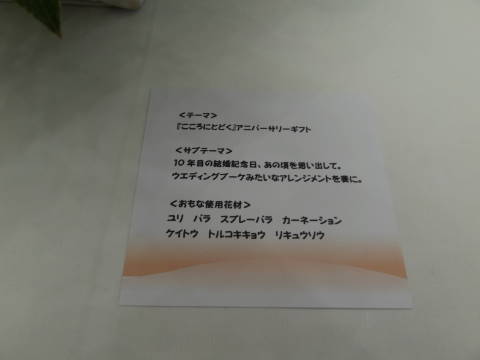 ＜テーマ＞
『こころにとどく』アニバーサリーギフト
＜サブテーマ＞
10年目の結婚記念日、あの頃を思い出して。
ウエディングブーケみたいなアレンジメントを妻に。
＜おもな使用花材＞
ユリ　バラ　スプレーバラ　カーネーション
ケイトウ　トルコキキョウ　リキュウソウ